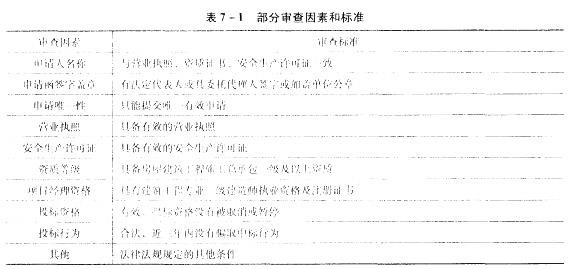 表7-1 部分审查因素和标准
审查因素 审查标准
申请人名称 与营业执照、资质证书、安全生产许可证一致
申请函签字盖章 有法定代表人或其委托代理人签字或加盖单位公章
申请唯一性 只能提交唯一有效申请
营业执照 具备有效的营业执照
安全生产许可证 具备有效的安全生产许可证
资质等级 具备房屋建筑工程施工总承包一级及以上资质
项目经理资格 具有建筑工程专业一级建造师执业资格及注册证书
投标资格 有效,投标资格没有被取消或暂停
投标行为 合法,近三年内没有骗取中标行为
其他 法律法规规定的其他条件